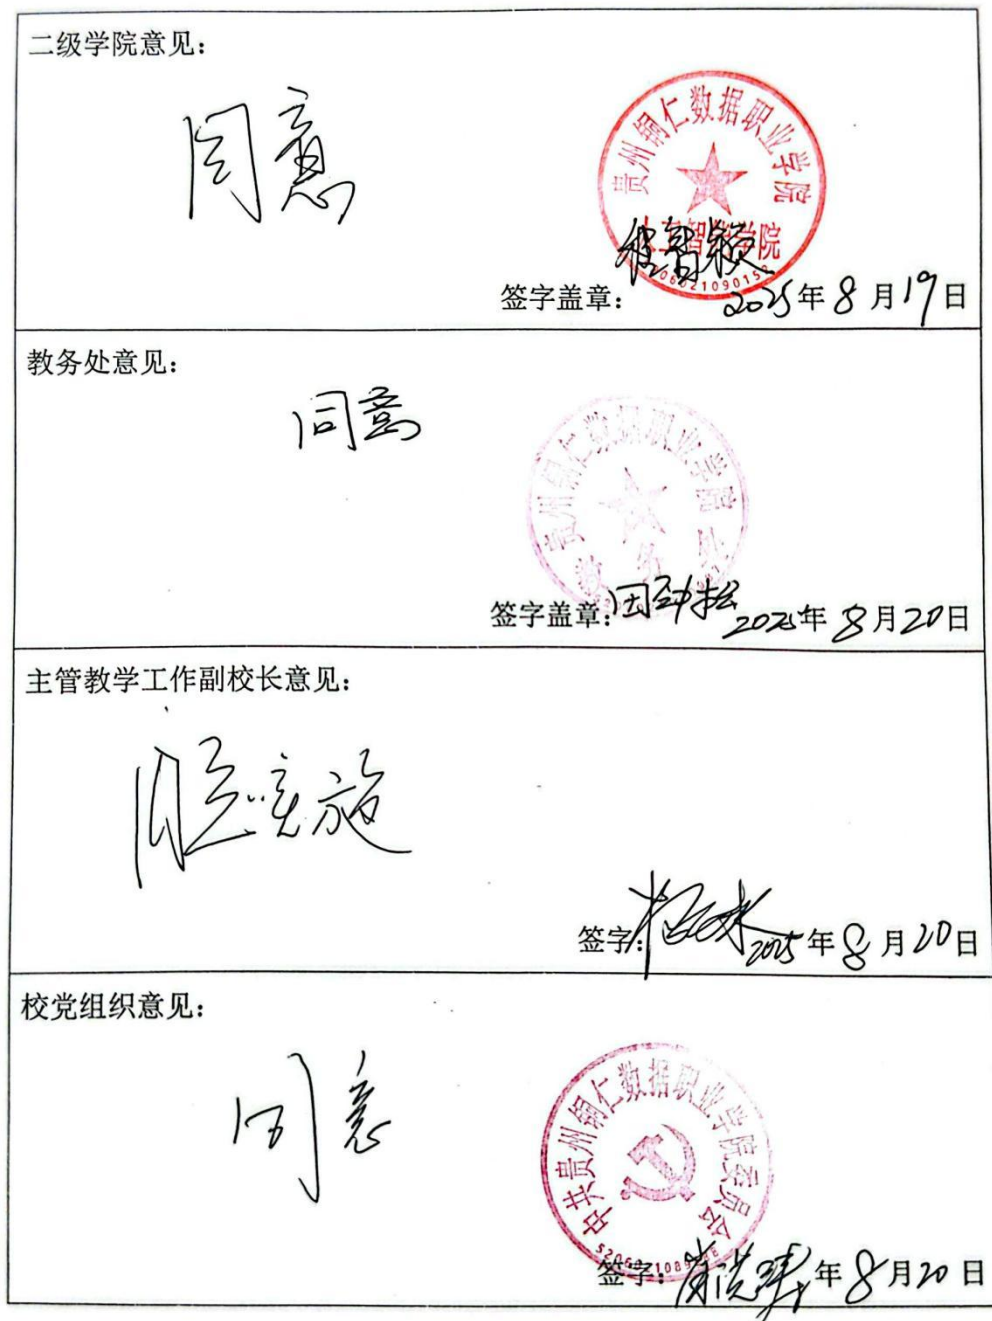 二级学院意见：
同意
贵州铜仁数据职业学院
学院
签字盖章：
2025年8月19日
教务处意见：
同意
贵州铜仁数据职业学院
教务处
签字盖章：田孙松
2025年8月20日
主管教学工作副校长意见：
同意实施
签字：
2025年8月20日
校党组织意见：
同意
中共贵州铜仁数据职业学院委员会
签字：
年8月20日